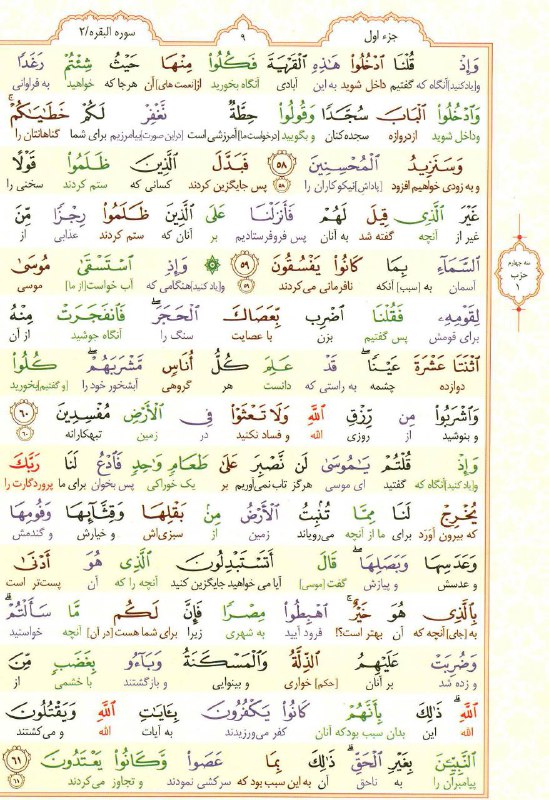 جزء اول
۹
سوره البقره/۲
وَإِذْ قُلْنَا ٱدْخُلُوا۟ هَـٰذِهِ ٱلْقَرْيَةَ فَكُلُوا۟ مِنْهَا حَيْثُ شِئْتُمْ رَغَدًا
و[یادکنید]آنگاه که گفتیم داخل شوید به این آبادی آنگاه بخورید از[نعمت های] آن هرجا که خواهید به فراوانی
وَٱدْخُلُوا۟ ٱلْبَابَ سُجَّدًا وَقُولُوا۟ حِطَّةٌ نَّغْفِرْ لَكُمْ خَطَـٰيَـٰكُمْ ۚ
وداخل شوید ازدروازه سجده‌کنان و بگویید [درخواست‌ما]آمرزشی است [دراین‌صورت]بیامرزیم برای شما گناهانتان را
وَسَنَزِيدُ ٱلْمُحْسِنِينَ ۵۸ فَبَدَّلَ ٱلَّذِينَ ظَلَمُوا۟ قَوْلًا
و به زودی خواهیم افزود [پاداش]نیکوکاران را ۵۸ پس جایگزین کردند کسانی که ستم کردند سخنی را
غَيْرَ ٱلَّذِى قِيلَ لَهُمْ فَأَنزَلْنَا عَلَى ٱلَّذِينَ ظَلَمُوا۟ رِجْزًا مِّنَ
غیر از آنچه گفته شد به آنان پس فروفرستادیم بر آنان که ستم کردند عذابی از
ٱلسَّمَآءِ بِمَا كَانُوا۟ يَفْسُقُونَ ۵۹ وَإِذِ ٱسْتَسْقَىٰ مُوسَىٰ
آسمان به [سبب] آنکه نافرمانی می‌کردند ۵۹ و[یاد کنید]هنگامی که آب خواست[از ما] موسی
سه چهارم
حزب
۱
لِقَوْمِهِۦ فَقُلْنَا ٱضْرِب بِّعَصَاكَ ٱلْحَجَرَ ۖ فَٱنفَجَرَتْ مِنْهُ
برای قومش پس گفتیم بزن با عصایت سنگ را آنگاه جوشید از آن
ٱثْنَتَا عَشْرَةَ عَيْنًا ۖ قَدْ عَلِمَ كُلُّ أُنَاسٍ مَّشْرَبَهُمْ ۖ كُلُوا۟
دوازده چشمه به راستی که دانست هر گروهی آبشخور خود را [و گفتیم]بخورید
وَٱشْرَبُوا۟ مِن رِّزْقِ ٱللَّهِ وَلَا تَعْثَوْا۟ فِى ٱلْأَرْضِ مُفْسِدِينَ ۶۰
و بنوشید از روزی الله و فساد نکنید در زمین تبهکارانه ۶۰
وَإِذْ قُلْتُمْ يَـٰمُوسَىٰ لَن نَّصْبِرَ عَلَىٰ طَعَامٍ وَٰحِدٍ فَٱدْعُ لَنَا رَبَّكَ
و[یاد کنید]آنگاه که گفتید ای موسی هرگز تاب‌نمی‌آوریم بر یک خوراکی پس بخوان برای ما پروردگارت را
يُخْرِجْ لَنَا مِمَّا تُنۢبِتُ ٱلْأَرْضُ مِنۢ بَقْلِهَا وَقِثَّآئِهَا وَفُومِهَا
که بیرون آوَرَد برای ما از آنچه می‌رویاند زمین از سبزی‌اش و خیارش و گندمش
وَعَدَسِهَا وَبَصَلِهَا ۖ قَالَ أَتَسْتَبْدِلُونَ ٱلَّذِى هُوَ أَدْنَىٰ
و عدسش و پیازش گفت[موسی] آیا می خواهید جایگزین کنید آنچه را که آن پست‌تر است
بِٱلَّذِى هُوَ خَيْرٌ ۚ ٱهْبِطُوا۟ مِصْرًا فَإِنَّ لَكُم مَّا سَأَلْتُمْ ۗ
به [جای]آنچه که آن بهتر است؟! فرود آیید به شهری زیرا برای شما هست[در آن] آنچه خواستید
وَضُرِبَتْ عَلَيْهِمُ ٱلذِّلَّةُ وَٱلْمَسْكَنَةُ وَبَآءُو بِغَضَبٍ مِّنَ
و زده شد بر آنان [حکم] خواری و بینوایی و بازگشتند با خشمی از
ٱللَّهِ ۗ ذَٰلِكَ بِأَنَّهُمْ كَانُوا۟ يَكْفُرُونَ بِـَٔايَـٰتِ ٱللَّهِ وَيَقْتُلُونَ
الله این بدان سبب بودکه آنان کفر می‌ورزیدند به آیات الله و می‌کشتند
ٱلنَّبِيِّـۧنَ بِغَيْرِ ٱلْحَقِّ ۗ ذَٰلِكَ بِمَا عَصَوا۟ وَّكَانُوا۟ يَعْتَدُونَ ۶۱
پیامبران را به ناحق آن به این سبب بود که سرکشی نمودند و تجاوز می‌کردند ۶۱